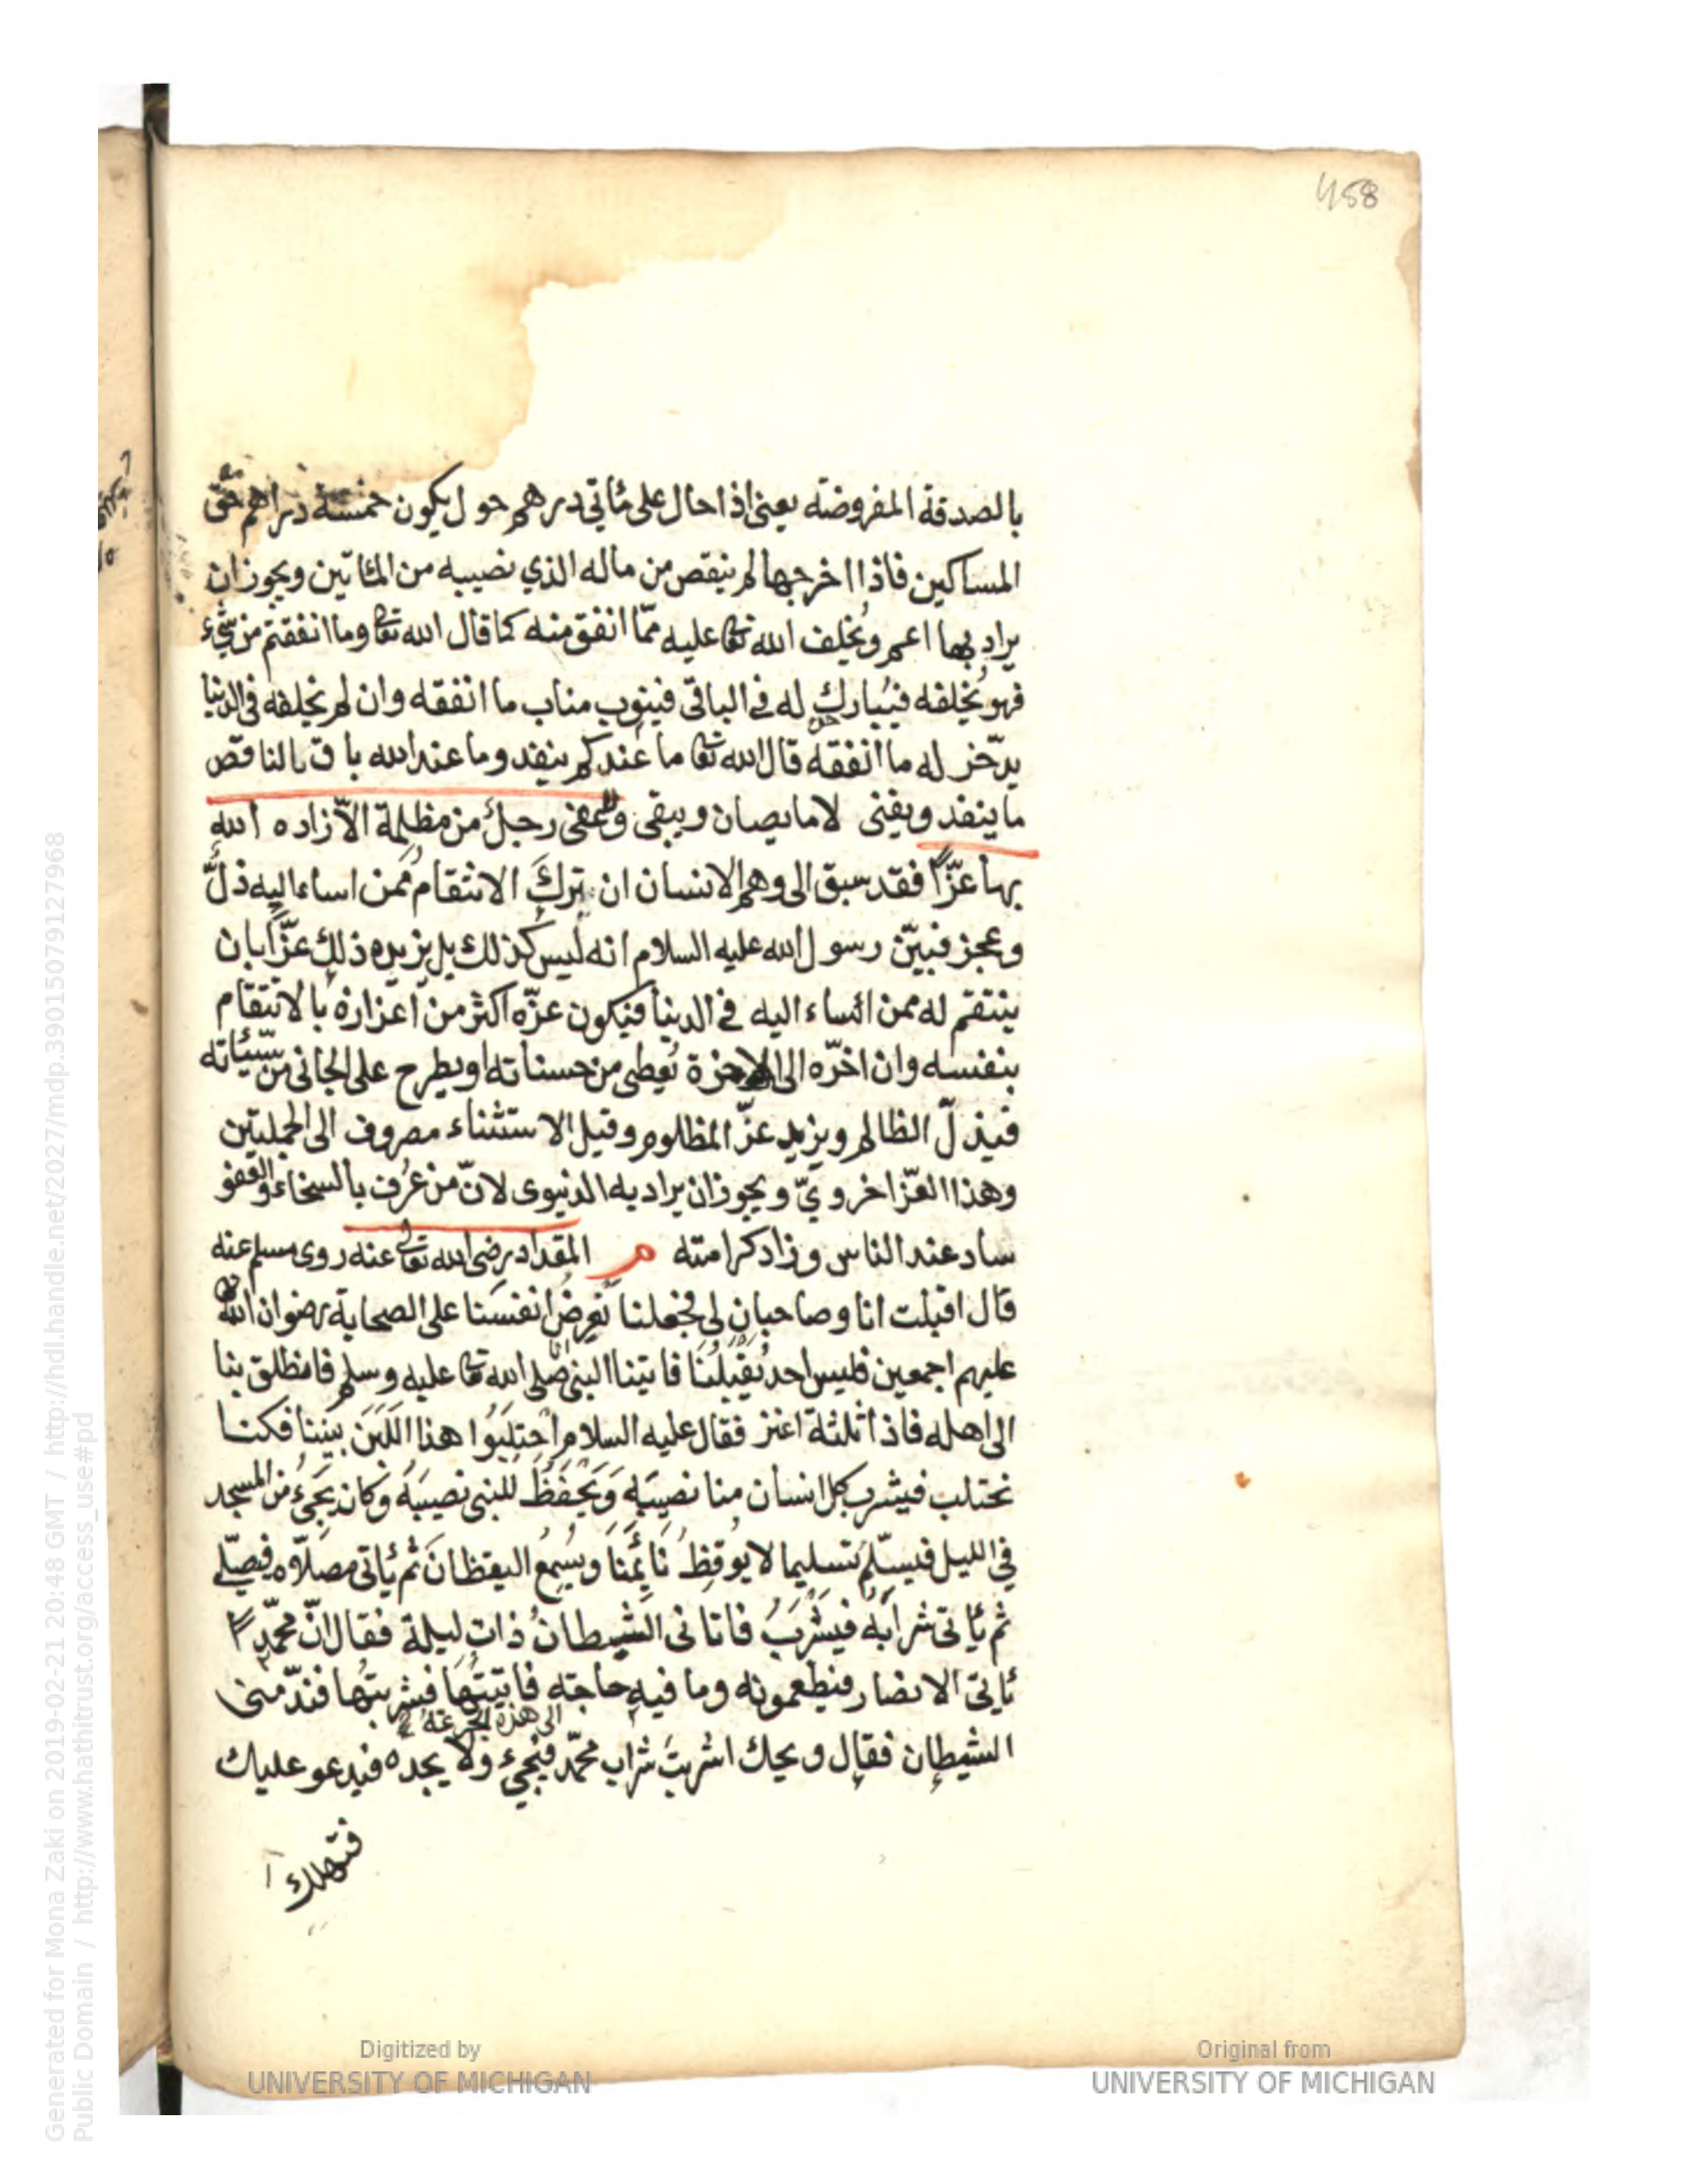 458
بالصدقة المفروضة يعنى اذا حال على مأتي درهم حول يكون خمسة دراهم حق
المساكين فاذا اخرجها لم ينقص من ماله الذي نصيبه من المأتين ويجوز ان
يراد بها اعم ويُخلف الله تعا عليه ممّا انفق منه كما قال الله تعا وما انفقتم من شيء
فهو يُخلفه فيُبارك له في الباقى فينوب مناب ما انفقه وان لم يخلفه فى الدنيا
يدّخر له ما انفقه قال الله تعا ما عندكم ينفد وما عند الله باق فالناقص
ما ينفد ويفنى لا ما يصان ويبقى ولا عفى رجل من مظلمة الّا زاده الله
بها عزًّا فقد سبق الى وهم الانسان ان ترك الانتقام ممن اساء اليه ذلّ
وعجز فبيّن رسول الله عليه السلام انه ليس كذلك بل يزيده ذلك عزًّا بان
ينتقم له ممن اساء اليه في الدنيا فيكون عزّه اكثر من اعزازه بالانتقام
بنفسه وان اخّره الى الاخرة يُعطى من حسناته او يطرح على الجانى من سيّئاته
فيذلّ الظالم ويزيد عزّ المظلوم وقيل الاستثناء مصروف الى الجملتين
وهذا العزّ اخرويّ ويجوز ان يراد به الدنيوى لانّ من عُرف بالسخاء والعفو
ساد عند الناس وزاد كرامته م المقداد رضى الله تعالى عنه روى مسلم عنه
قال اقبلت انا وصاحبان لى فجعلنا نَعرِضُ انفسَنا على الصحابة رضوان الله
عليهم اجمعين فليس احد يُقبلُنا فاتينا النبى صلى الله تعا عليه وسلم فانطلق بنا
الى اهله فاذا ثلثة اعنز فقال عليه السلام احتلِبَوُا هذا اللَبَنَ بيننا فكنا
نحتلب فيشرب كل انسان منا نصيبَه وَيَحْفَظُ للنبى نصيبَهُ وكان يَجيءُ من المسجد
في الليل فيسلّم تسليما لا يوقِظُ نَائِمَنَا ويُسْمِعُ اليقظانَ ثم يأتى مصلّاه فيصلّى
ثم يأتى شرابَهُ فيَشْرَبُ فاتانى الشيطانُ ذات ليلة فقال انّ محمّدا
يأتى الانصار فيطعمونه وما فيه حاجته فاتيتُها فشربتُها فندّمنى
الى هذه الجرعة
الشيطان فقال ويحك اشربتَ شراب محمّد فيجيء ولا يجده فيدعو عليك
فتهلك
Digitized by
UNIVERSITY OF MICHIGAN
Original from
UNIVERSITY OF MICHIGAN
Generated for Mona Zaki on 2019-02-21 20:48 GMT / http://hdl.handle.net/2027/mdp.39015079127968
Public Domain / http://www.hathitrust.org/access_use#pd